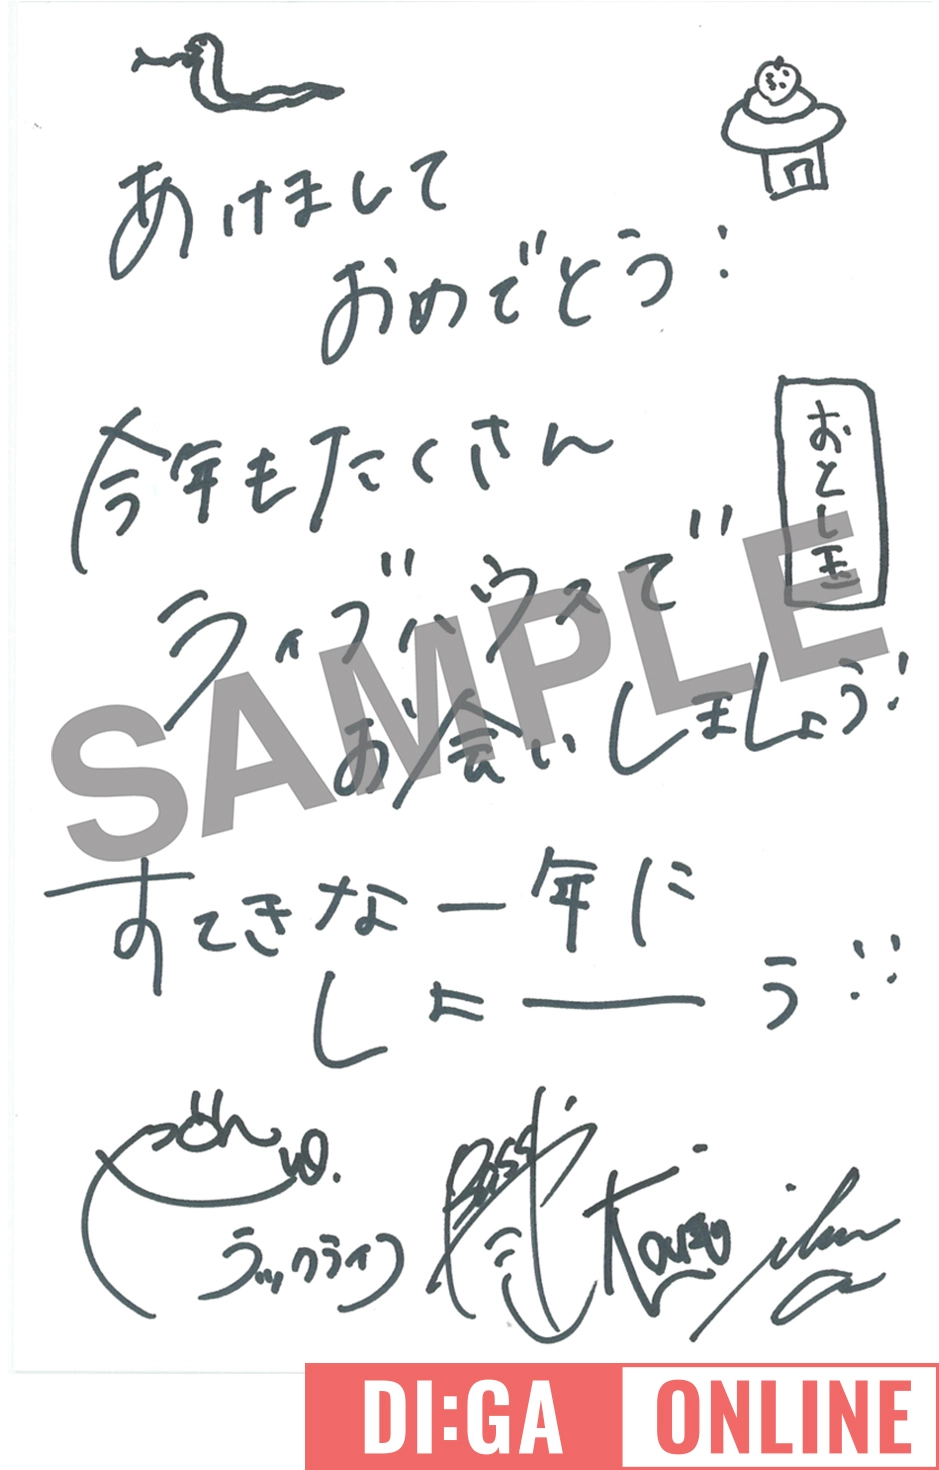 あけまして
おめでとう!
おとし玉
今年もたくさん
ライブハウスで
お会いしましょう!
すてきな一年に
しょーう!!
ラックライフ
SAMPLE
DI:GA ONLINE